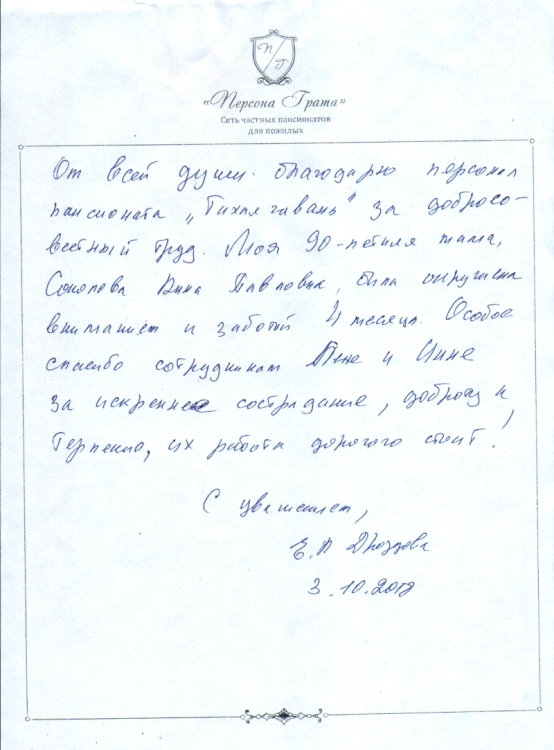 П/Г
«Персона Грата»
Сеть частных пансионатов
для пожилых
От всей души благодарю персонал
пансионата „Тихая гавань" за добросо-
вестный труд. Моя 90-летняя мама,
Соколова Нина Павловна, была окружена
вниманием и заботой 4 месяца. Особое
спасибо сотрудникам Лене и Инне
за искреннее сострадание, доброту и
терпение, их работа дорогого стоит!
С уважением,
Е.А Дроздова
3.10.2018